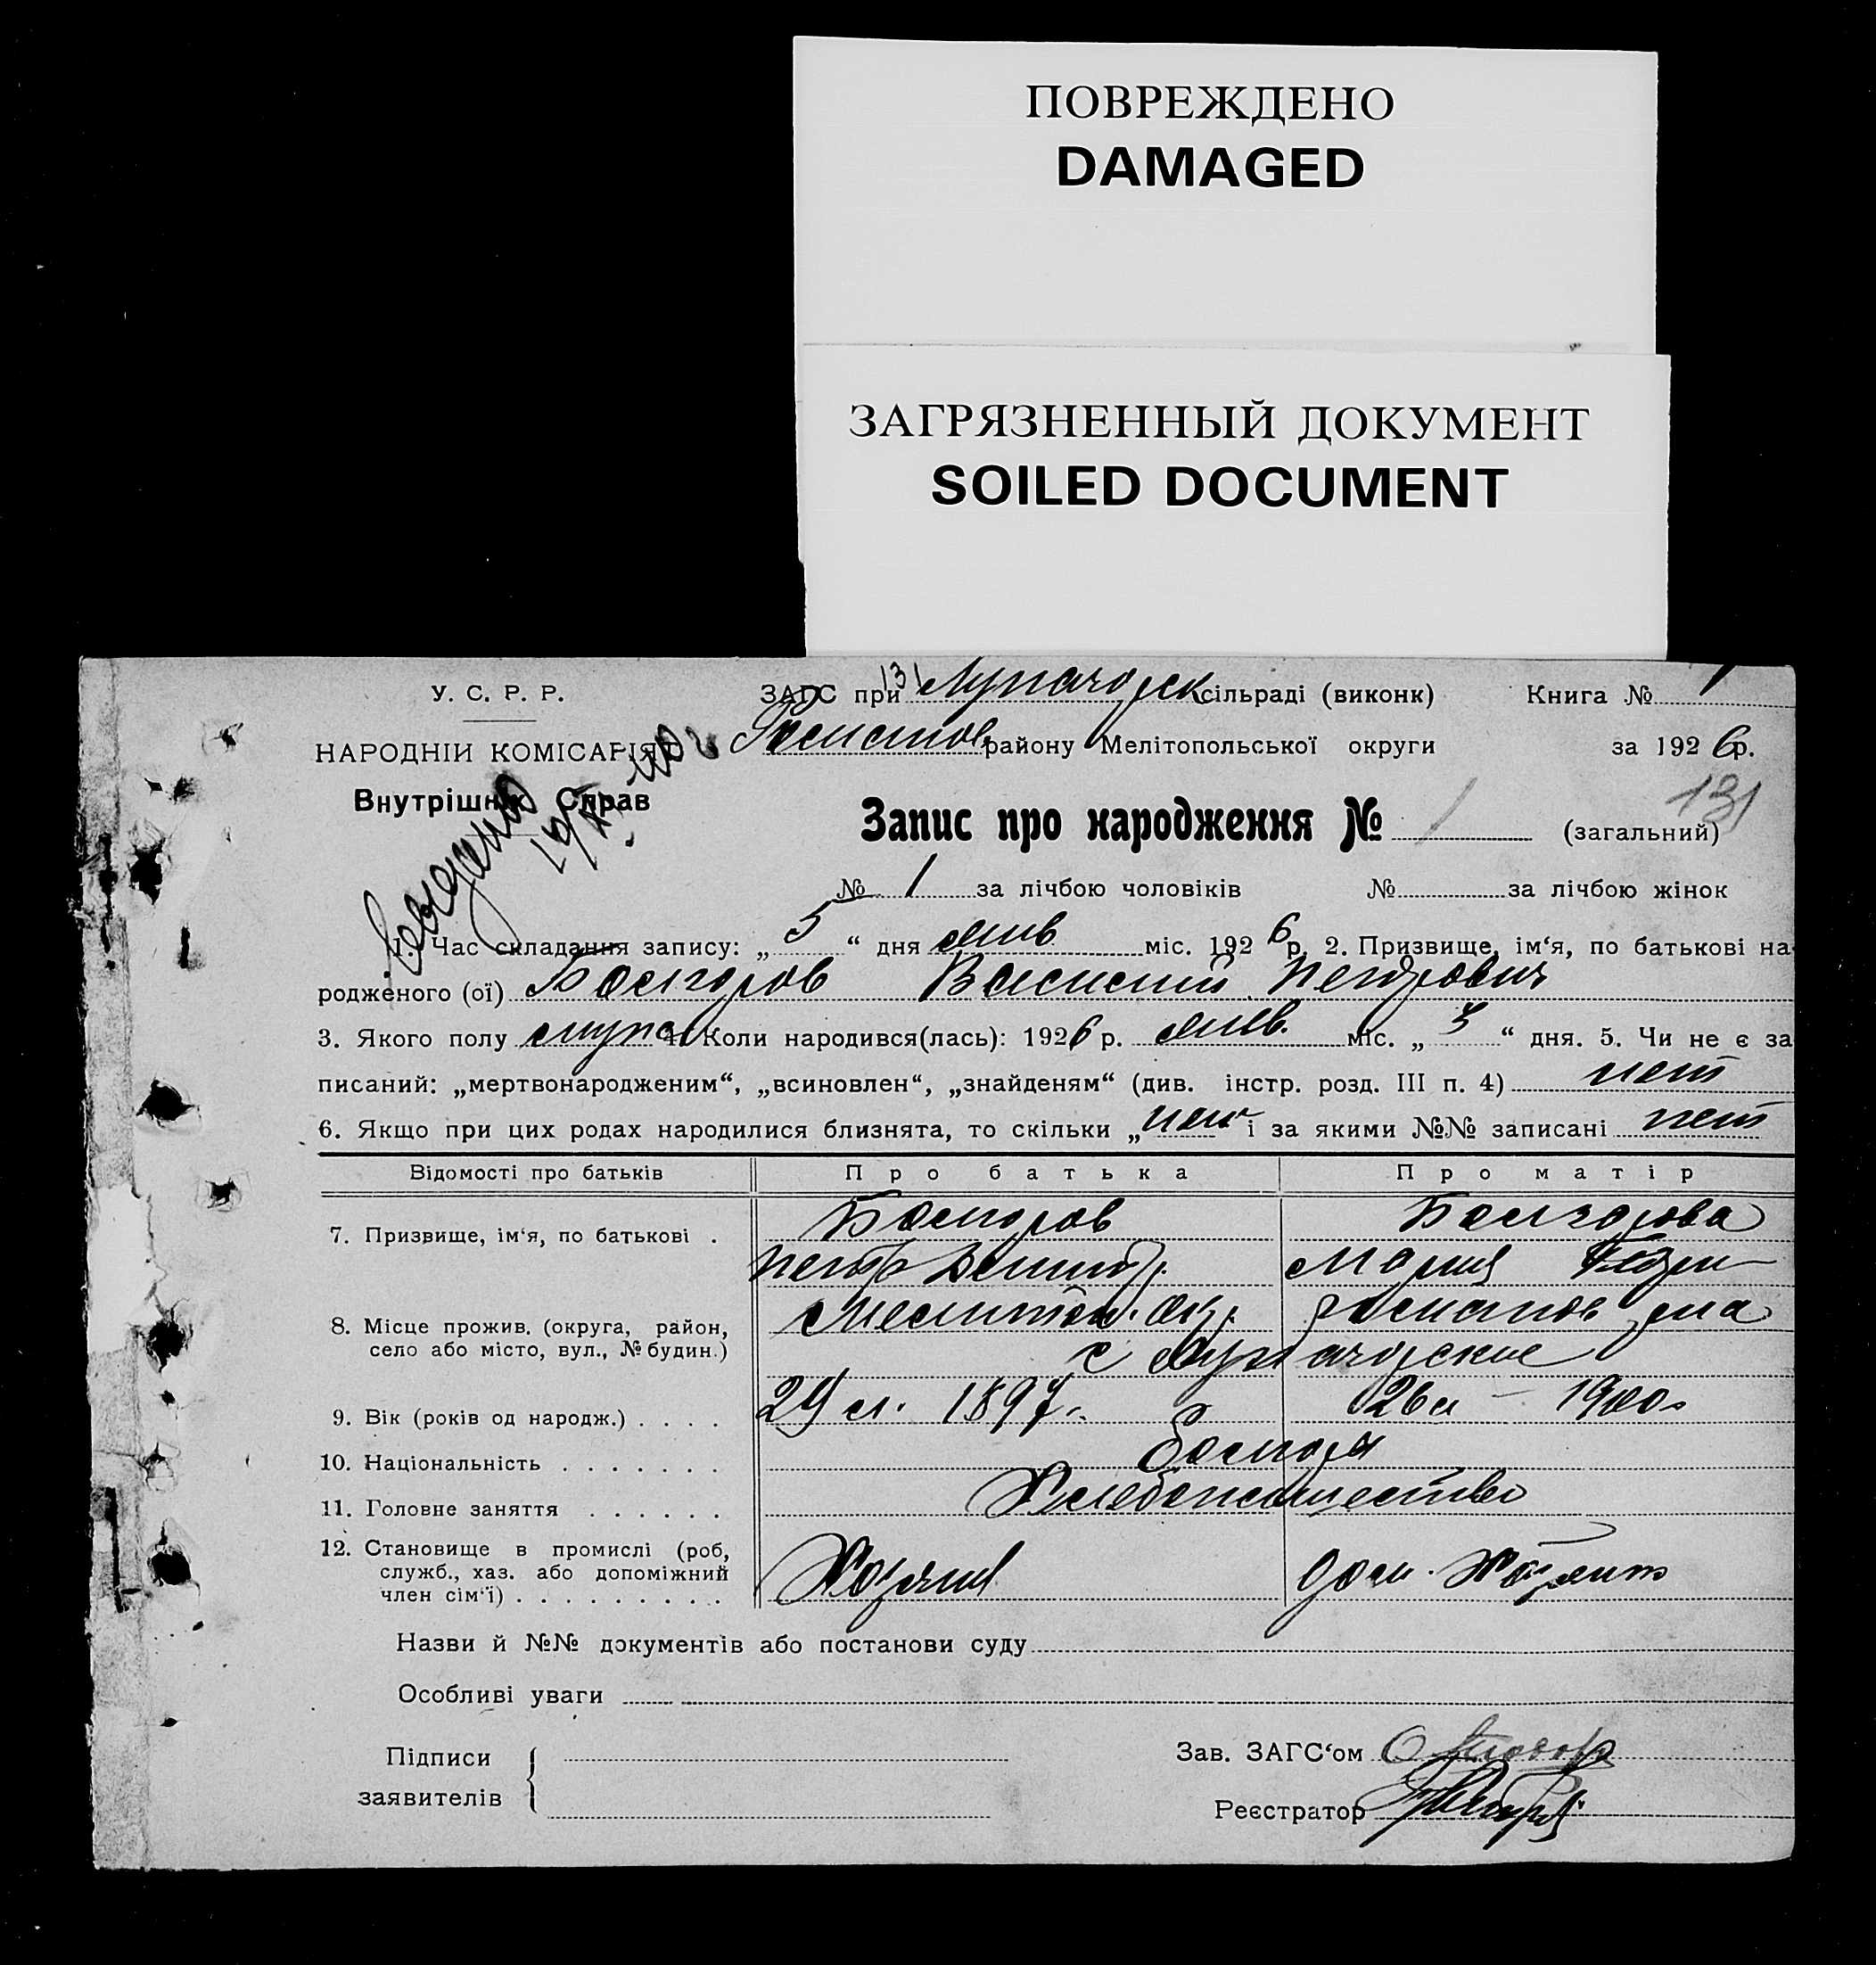 ПОВРЕЖДЕНО
DAMAGED
ЗАГРЯЗНЕННЫЙ ДОКУМЕНТ
SOILED DOCUMENT
131
У. С. Р. Р. ЗАГС при сільраді (виконк) Книга № 1
НАРОДНІЙ КОМІСАРІЯТ району Мелітопольської округи за 1926р.
Внутрішніх Справ
131
Запис про народження № 1 (загальний)
№ 1 за лічбою чоловіків № за лічбою жінок
1. Час складання запису: „5“ дня янв міс. 1926 р. 2. Призвище, ім‘я, по батькові на-
родженого (ої) Болгоров Василий Петрович
3. Якого полу муж 4. Коли народився(лась): 1926 р. янв. міс. „3“ дня. 5. Чи не є за
писаний: „мертвонародженим“, „всиновлен“, „знайденям“ (див. інстр. розд. III п. 4) нет
6. Якщо при цих родах народилися близнята, то скільки „нет“ і за якими №№ записані нет
Відомості про батьків Про батька Про матір
7. Призвище, ім‘я, по батькові . Болгоров Болгорова
Петр Мария
8. Місце прожив. (округа, район, Мелитоп. окр.
село або місто, вул., № будин.) с
9. Вік (років од народж.) . . . . 29 л. 1897 г. 26 л - 1900
10. Національність . . . . . . .
11. Головне заняття . . . . . . Хлебопашество
12. Становище в промислі (роб,
служб., хаз. або допоміжний Хозяин дом.
член сім‘ї) . . . . . . . . . .
Назви й №№ документів або постанови суду
Особливі уваги
Підписи Зав. ЗАГС‘ом
заявителів Реєстратор